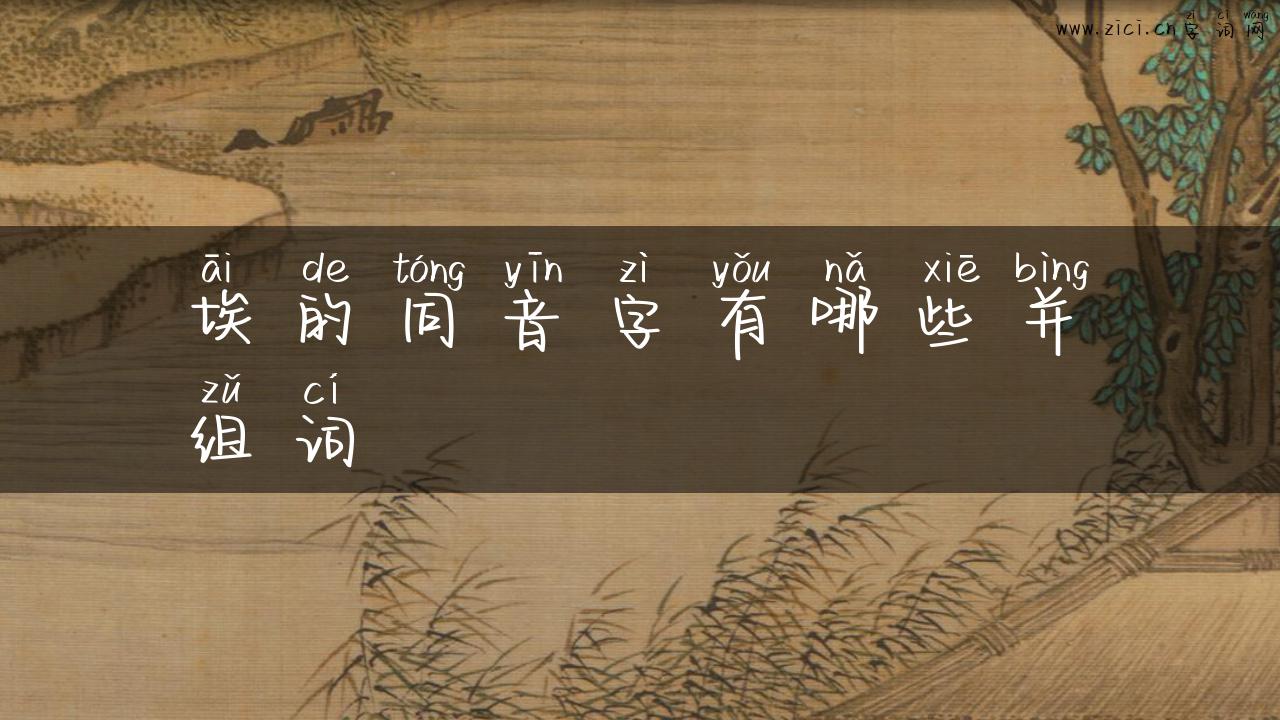 zì cí wǎng
www.zici.cn字词网
āi de tóng yīn zì yǒu nǎ xiē bìng
埃的同音字有哪些并
zǔ cí
组词